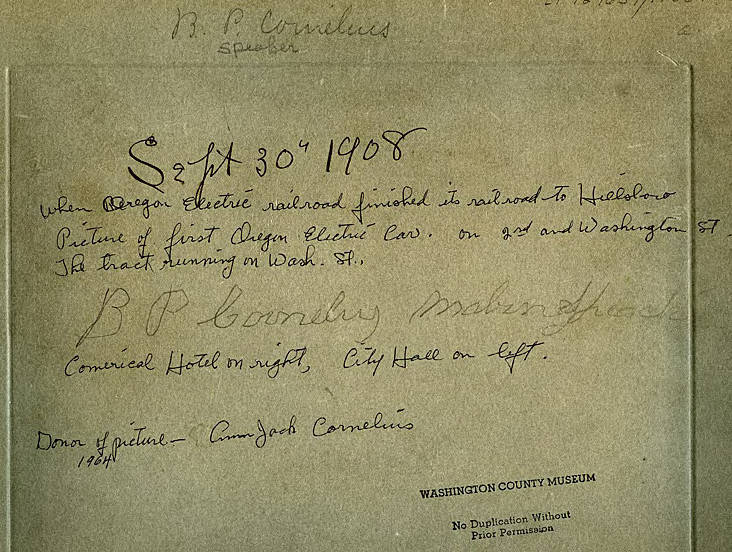 B. P Cornelius
speaker
Sept 30" 1908
When Oregon Electric railroad finished its railroad to Hillsboro
Picture of first Oregon Electric Car. on 2nd and Washington St.
The tract running on Wash. St.,
B P Cornelius Making Speach
Comerical Hotel on right, City Hall on left.
Donor of picture - Jack Cornelius
1964
WASHINGTON COUNTY MUSEUM
No Duplication Without
Prior Permission